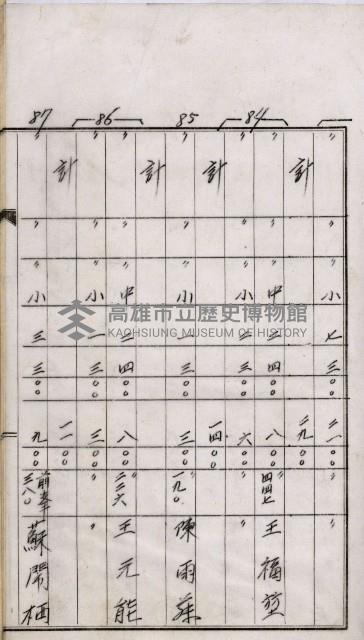 〃 〃 小 七 三〇〇 二一〇〇 〃
計 二九〇〇
84 〃 〃 〃 中 二 四〇〇 八〇〇 〃 四四七 王福
〃 〃 〃 小 二 三〇〇 六〇〇 〃
計 一四〇〇
85 〃 〃 〃 小 一 三〇〇 三〇〇 〃 一九〇 陳雨
計
86 〃 〃 〃 中 二 四〇〇 八〇〇 〃 二三六 王元能
〃 〃 〃 小 一 三〇〇 三〇〇 〃
計 一一〇〇
87 〃 〃 〃 小 三 三〇〇 九〇〇 前峯 三八〇 蘇閙栖
高雄市立歷史博物館
KAOHSIUNG MUSEUM OF HISTORY